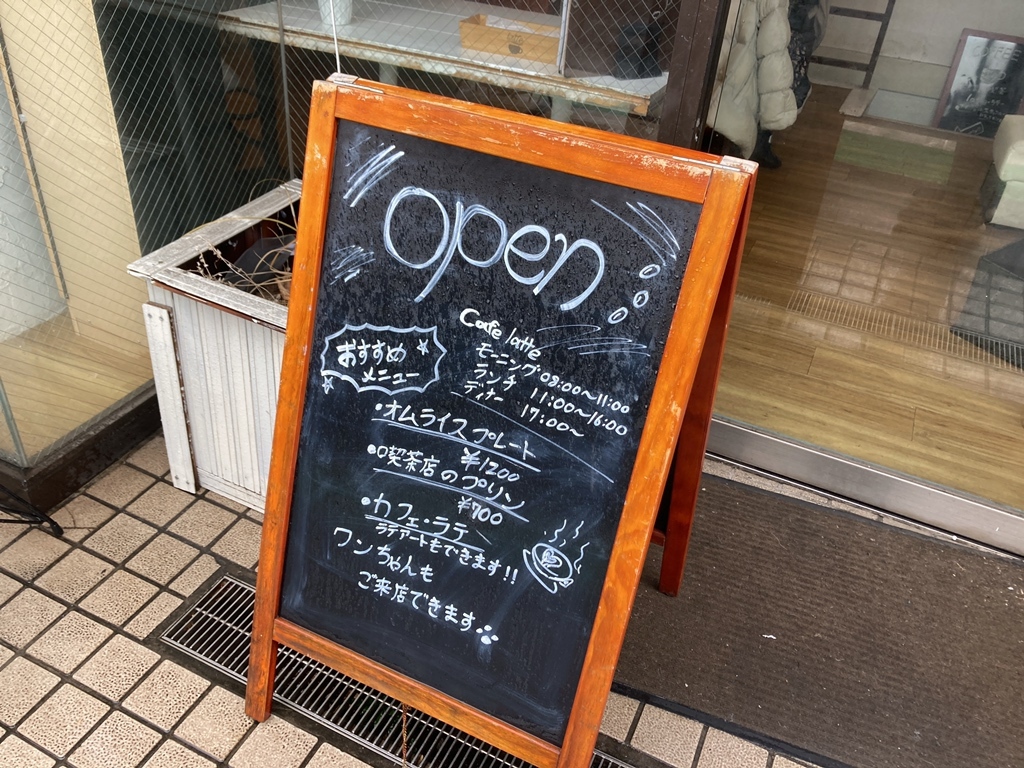 open
Cafe latte
モーニング 08:00〜11:00
ランチ 11:00〜16:00
ディナー 17:00〜
おすすめ
メニュー
・オムライスプレート
¥1200
・喫茶店のプリン
¥700
・カフェ・ラテ
ラテアートもできます!!
ワンちゃんも
ご来店できます